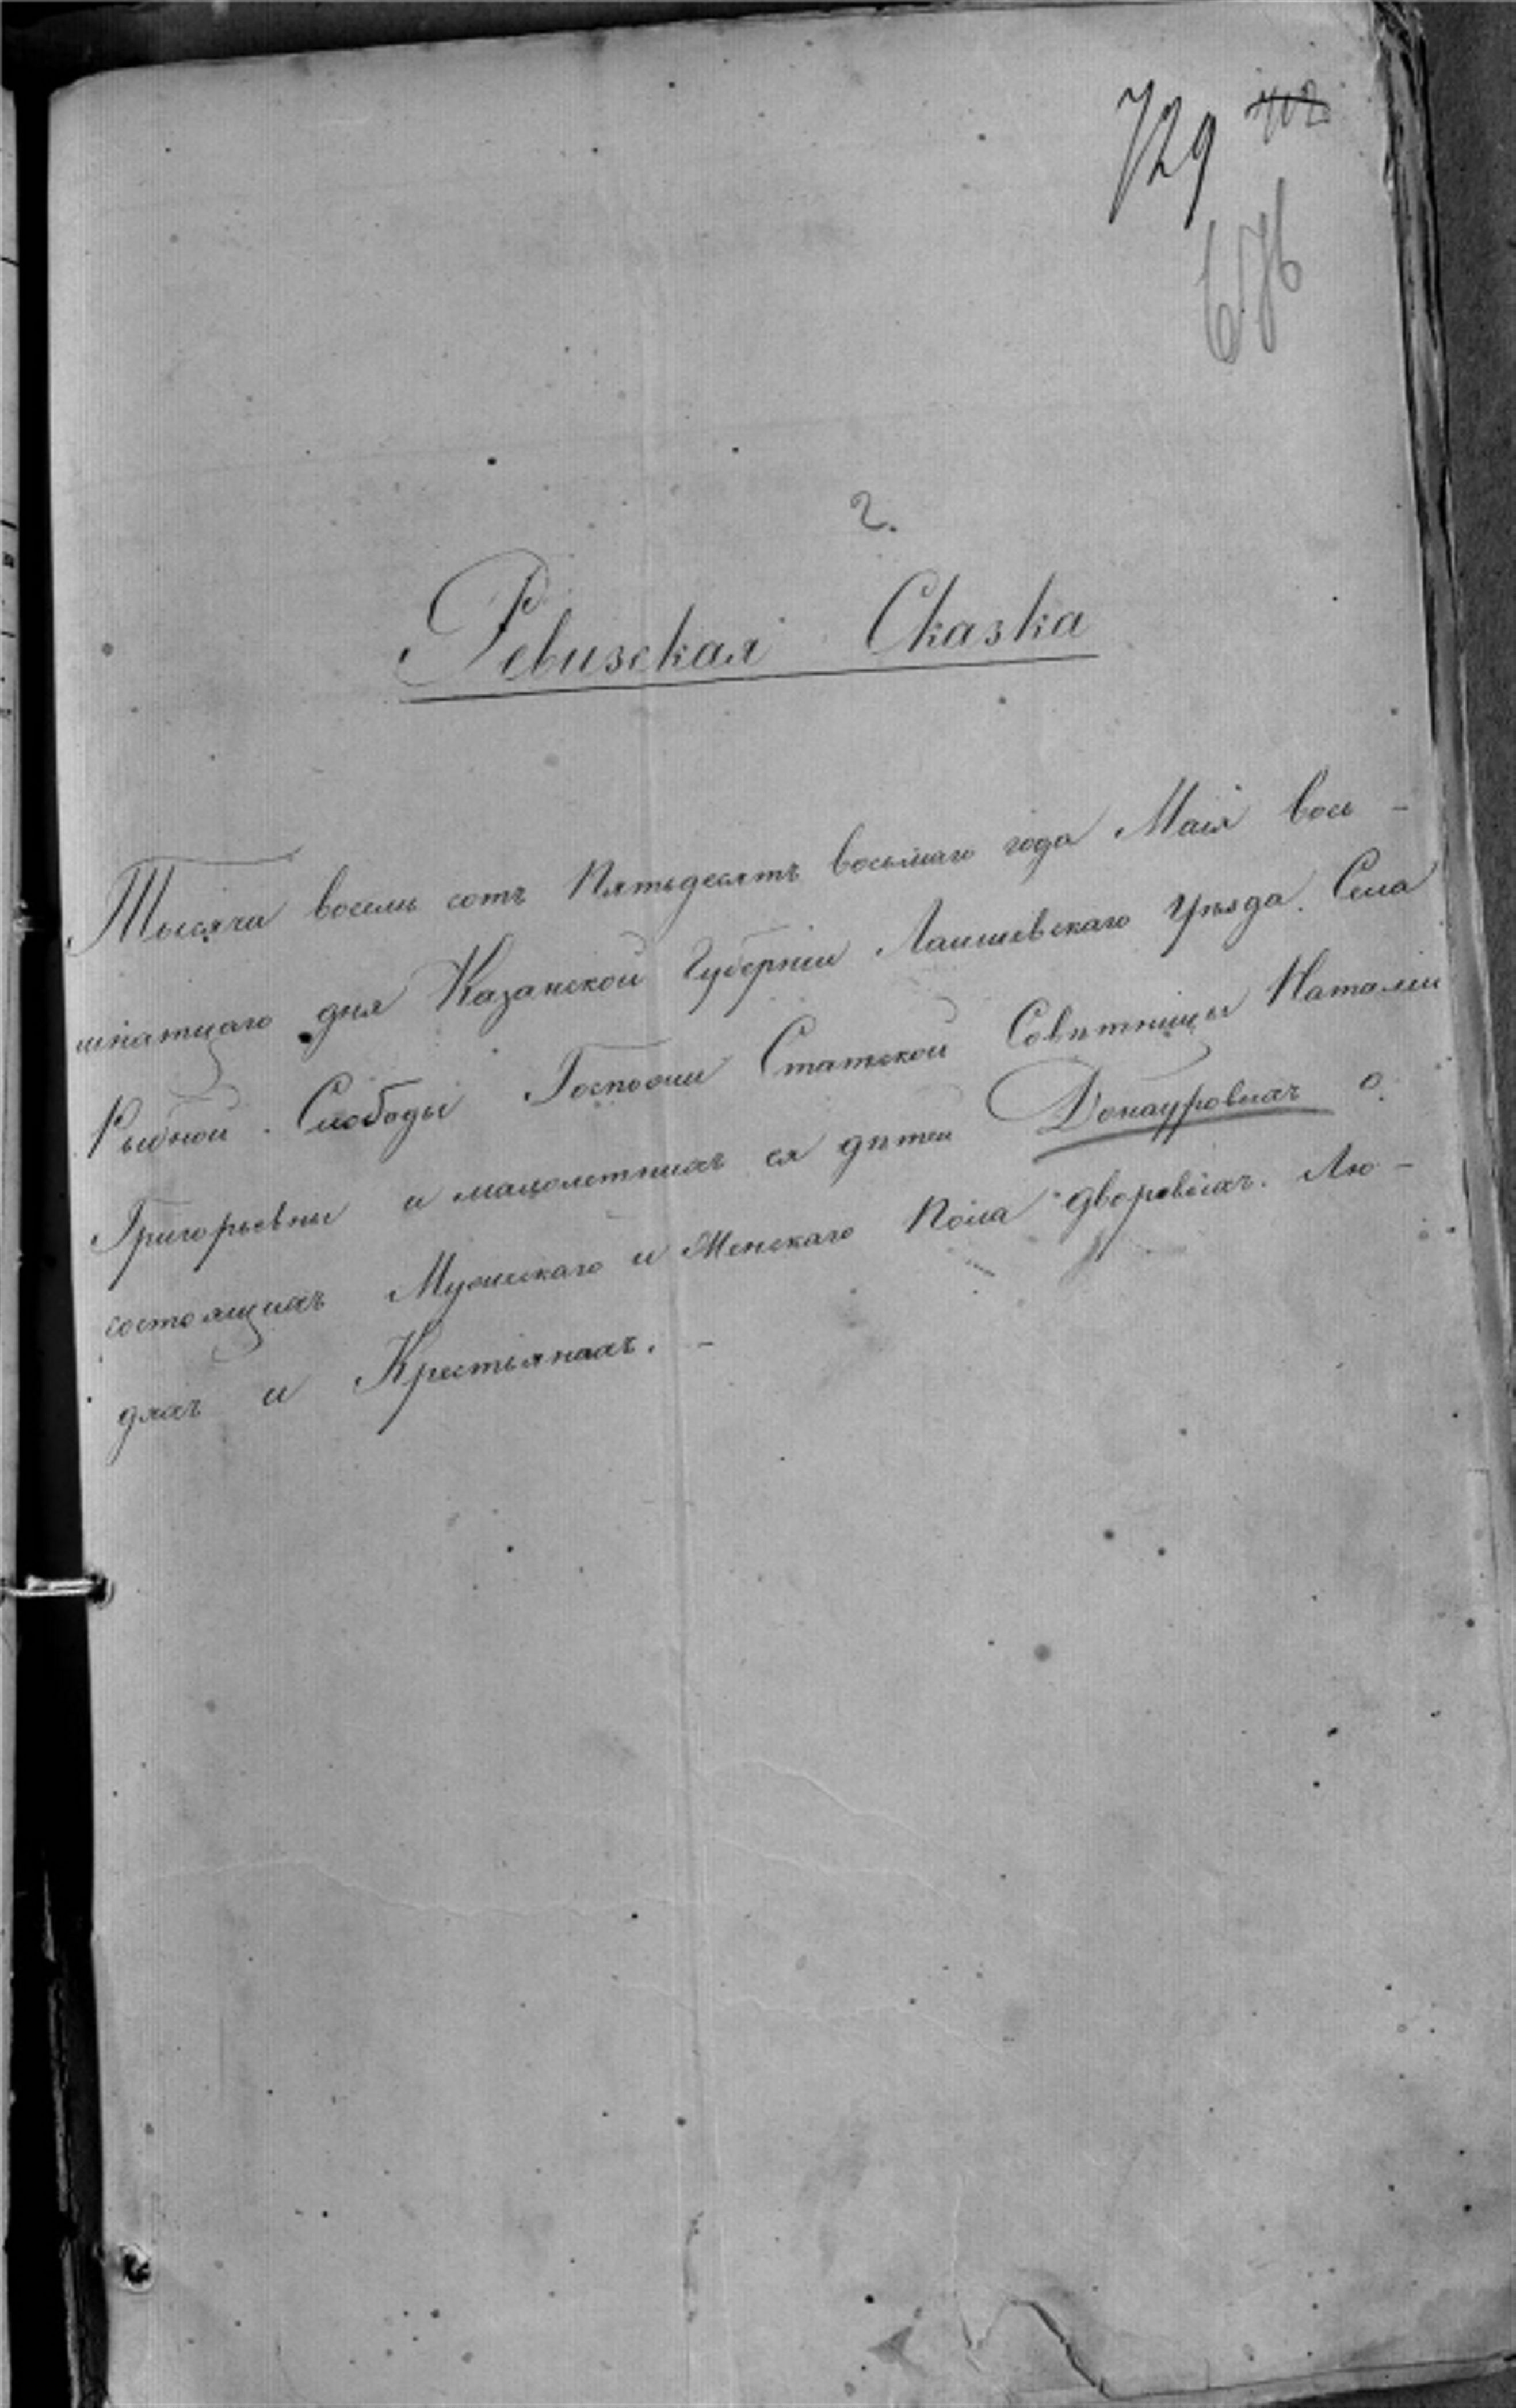 729 402
676
2.
Ревизская Сказка
Тысяча восемь сотъ Пятьдесятъ восьмаго года Маія вось-
мнатцаго дня Казанской Губерніи Лаишевскаго Уѣзда. Села
Рыбной Слободы Госпожи Статской Совѣтницы Наталіи
Григорьевны и малолетнихъ ея дѣтей Донауровыхъ о
состоящихъ Мужескаго и Женскаго Пола дворовыхъ Лю-
дяхъ и Крестьянахъ. -